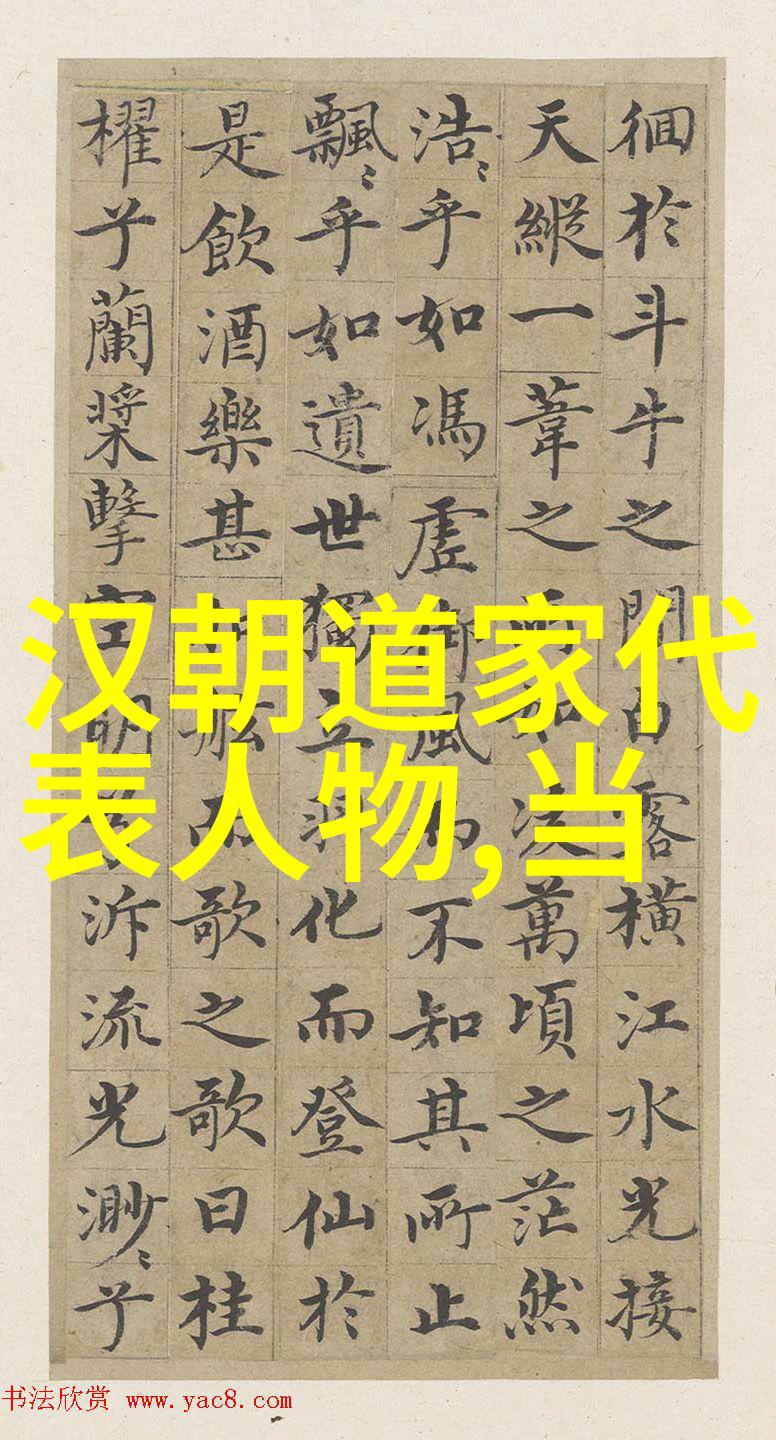 徊於斗牛之間白露橫江水光接
天縱一葦之所如凌萬頃之茫然
浩〻乎如馮虛御風而不知其所止
飄〻乎如遺世獨立羽化而登仙於
是飲酒樂甚扣舷而歌之歌曰桂
櫂兮蘭槳擊空明兮泝流光渺〻兮
汉朝道家代
表人物,当
书法欣赏 www.yac8.com